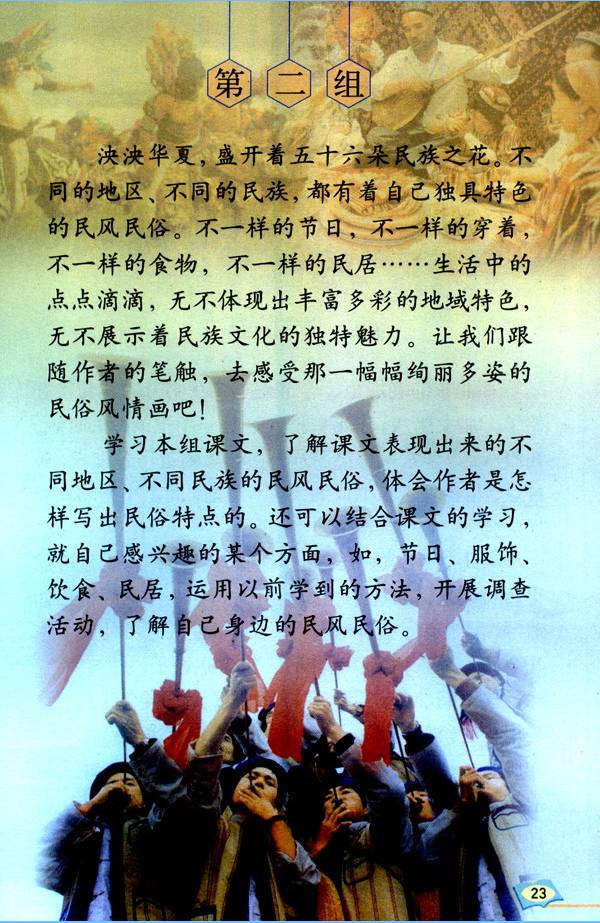 第二组
泱泱华夏，盛开着五十六朵民族之花。不
同的地区、不同的民族，都有着自己独具特色
的民风民俗。不一样的节日，不一样的穿着，
不一样的食物，不一样的民居……生活中的
点点滴滴，无不体现出丰富多彩的地域特色，
无不展示着民族文化的独特魅力。让我们跟
随作者的笔触，去感受那一幅幅绚丽多姿的
民俗风情画吧！
学习本组课文，了解课文表现出来的不
同地区、不同民族的民风民俗，体会作者是怎
样写出民俗特点的。还可以结合课文的学习，
就自己感兴趣的某个方面，如，节日、服饰、
饮食、民居，运用以前学到的方法，开展调查
活动，了解自己身边的民风民俗。
23